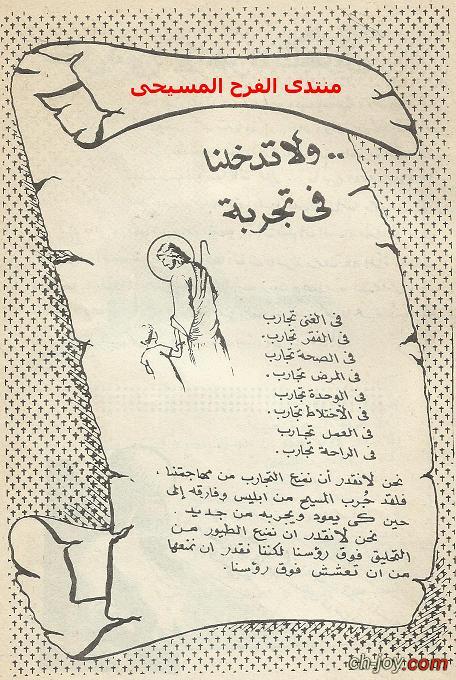 منتدى الفرح المسيحى
.. ولا تدخلنا
فى تجربة
فى الغنى تجارب
فى الفقر تجارب .
فى الصحة تجارب
فى المرض تجارب .
فى الوحدة تجارب
فى الأختلاط تجارب .
فى العمل تجارب
فى الراحة تجارب .
نحن لانقدر أن نمنع التجارب من مهاجمتنا .
فلقد جُرب المسيح من ابليس وفارقه إلى
حين كى يعود ويجربه من جديد .
نحن لانقدر ان نمنع الطيور من
التحليق فوق رؤسنا لكننا نقدر ان نمنعها
من ان تعشش فوق رؤسنا .
ch-joy.com